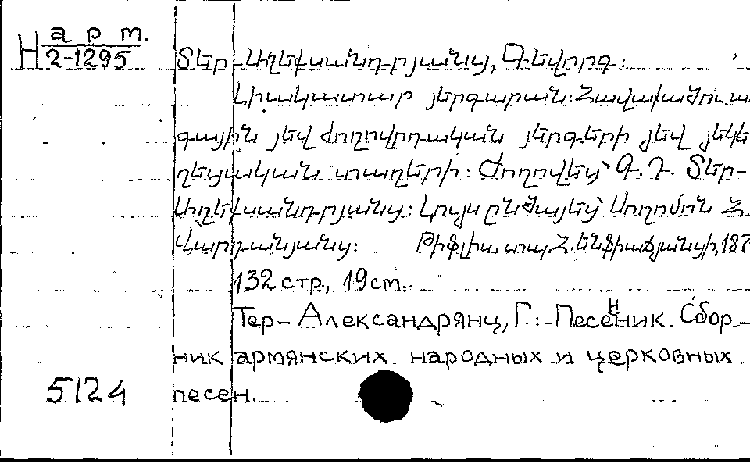 H арт.
2-1295
Տեր-Աղեկսանդրյանց, Գեվորգ:
Լիակատար յերգարան: Հավաքածու ա
գային յեվ ժողովրդական յերգերի յեվ յեկե
ղեցական տաղերի: Ժողովեց Գ. Դ. Տեր-
Աղեկսանդրյանց: Լույս ընծայեց Սողոմոն Հ.
Վարդանյանց: Թիֆլիս, տպ. Հ. Ենֆիաճյանցի, 187
132 стр., 19 см.
Тер-Александрянц, Г.: Песенник. Сбор
ник армянских народных и церковных
песен.
5124